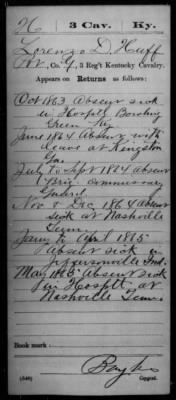 H 3 Cav. Ky.
Lorenzo D. Huff
Pvt., Co. G, 3 Reg't Kentucky Cavalry.
Appears on Returns as follows:
Oct 1863 Absent sick
in Hosptl Bowling
Green Ky.
June 1864 Absent with
leave at Kingston
Ga.
July to Sept 1864 absent
Brig. commissary
Guard
Nov & Dec 1864 absent
sick at Nashville
Tenn.
Jany to April 1865
Absent sick in
Jeffersonville Ind.
May 1865 Absent sick
in Hosptl at
Nashville Tenn.
Book mark:
(546) Copyist.